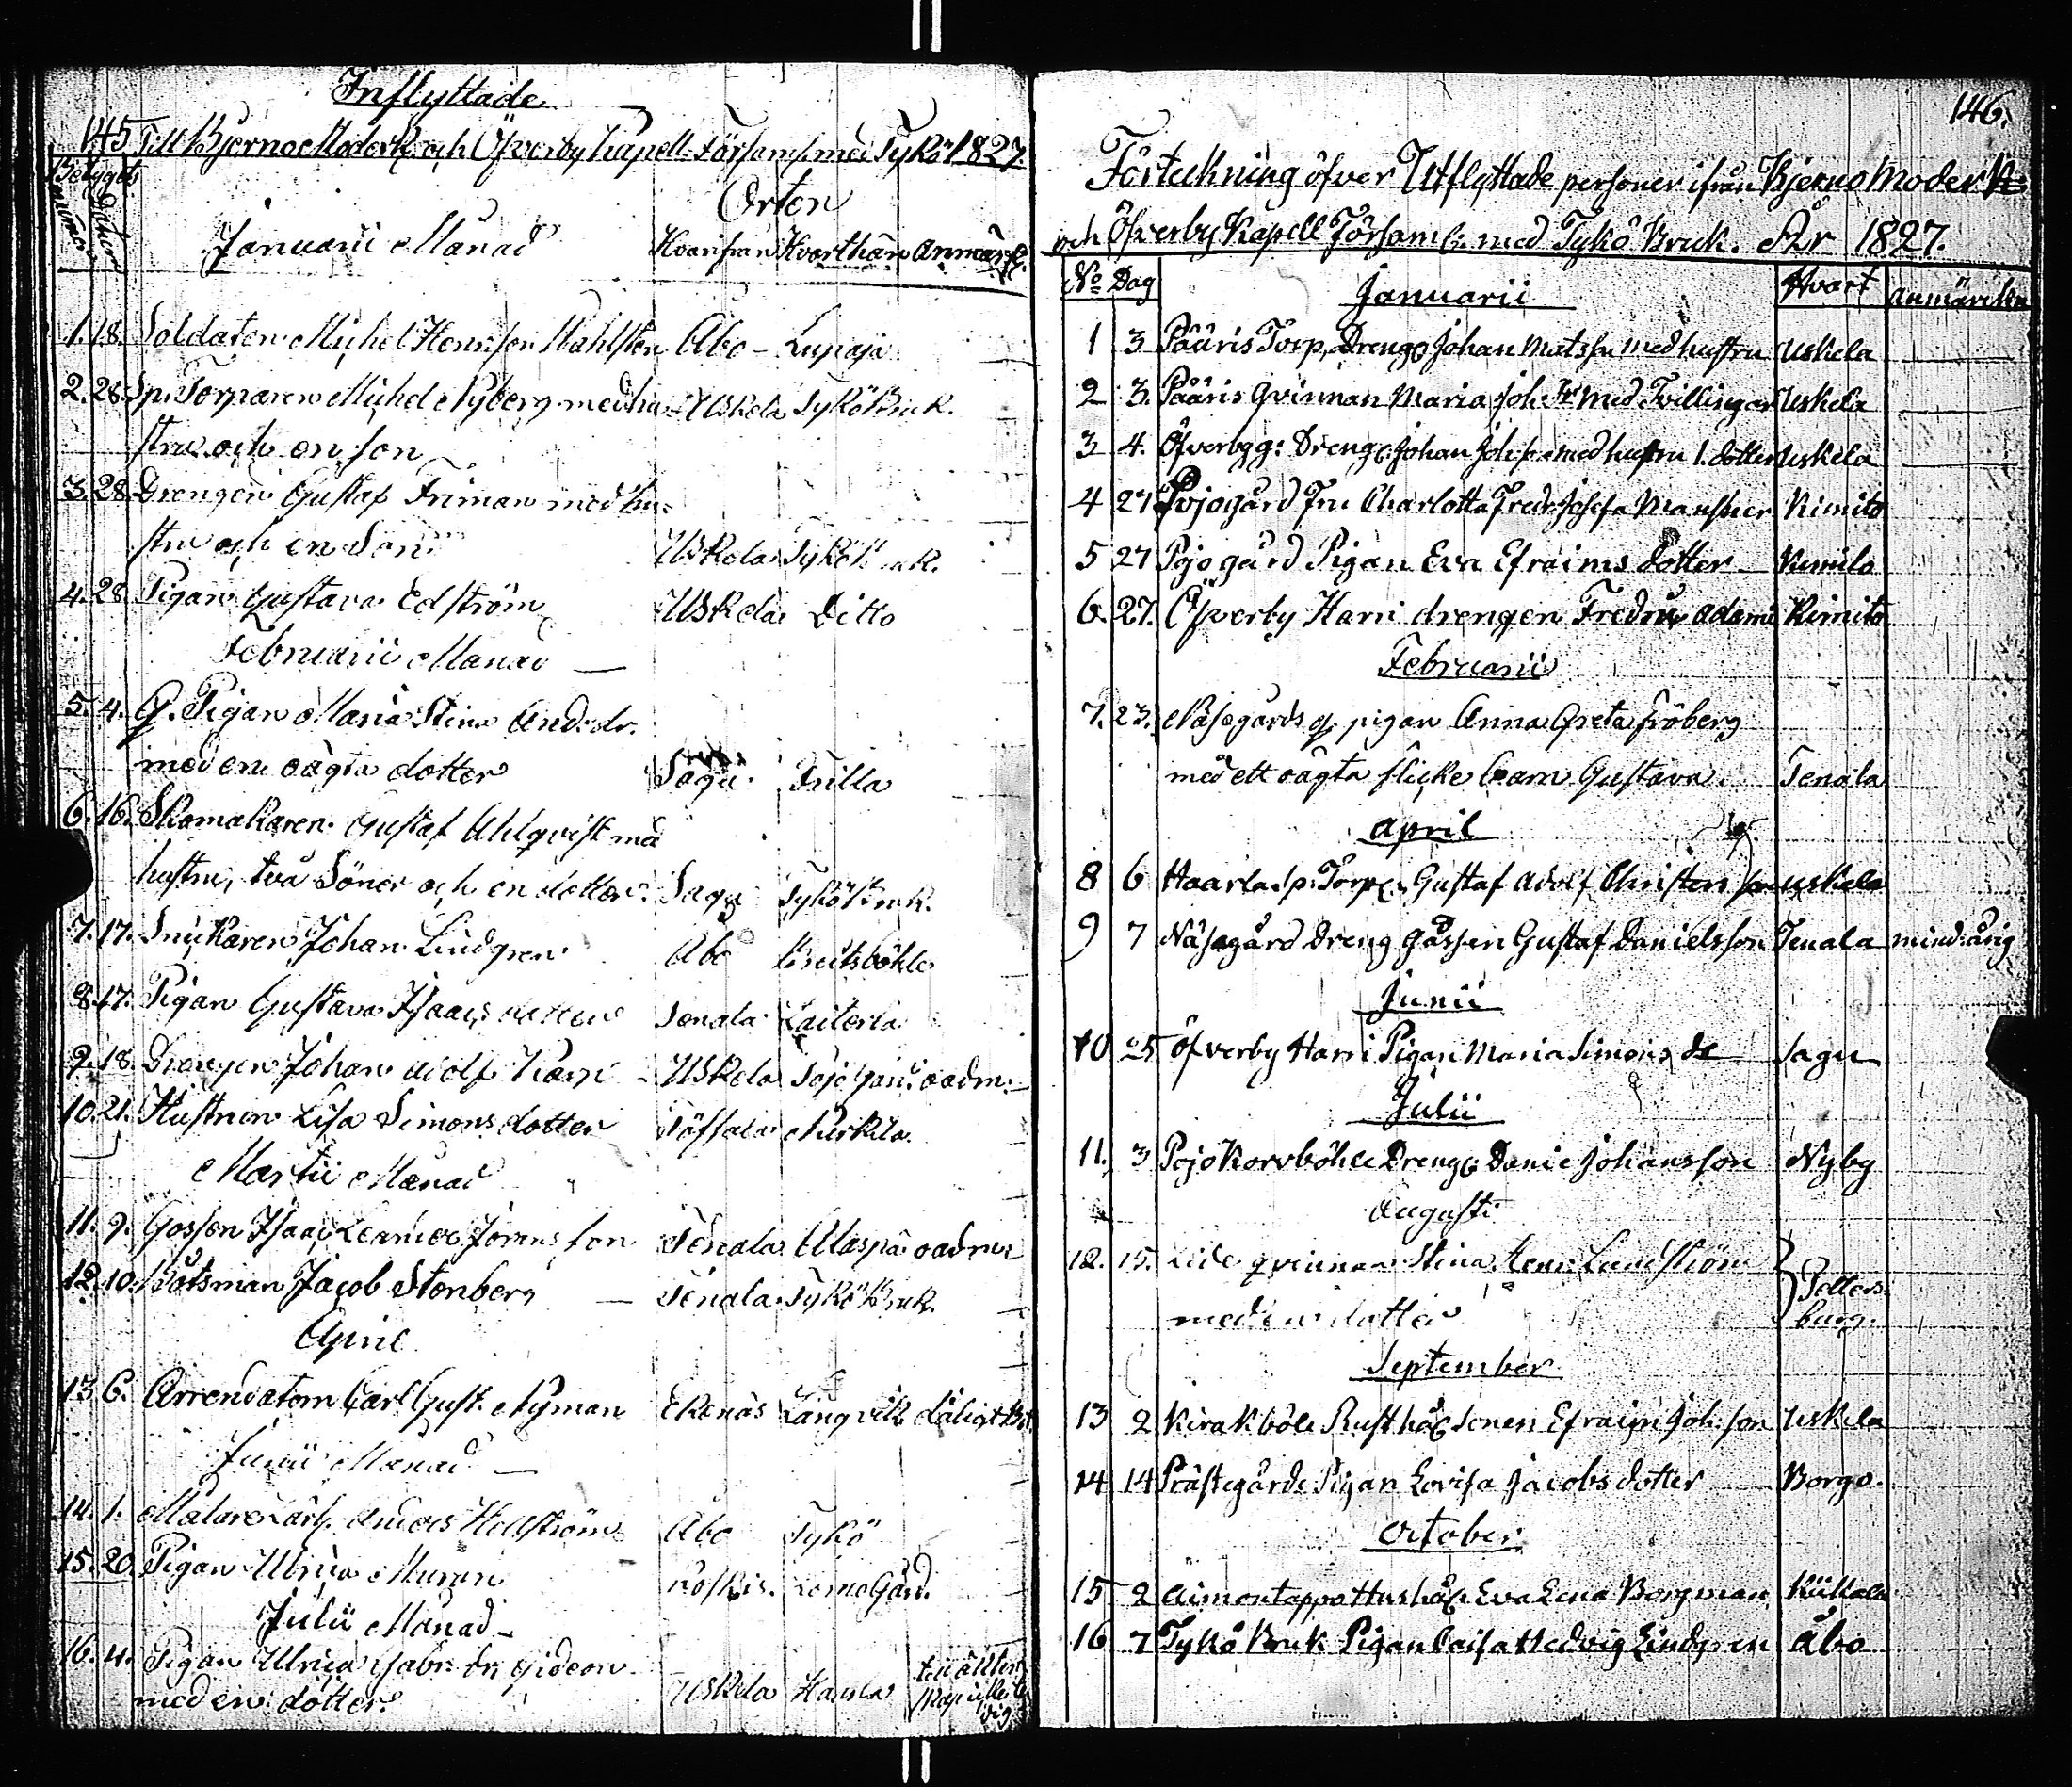 Inflyttade
145 Till Bjerno Moderk. och Öfverby Kapell Församl. med Tykö 1827.
Betygets
Orten
Januarii Månad Hvarifrån Hvarthän Anmärk.
1. 18. Soldaten Michel Henr:son Wahlsten Åbo - Lupaja
2. 28. Sp. Torparen Michel Nyberg med hu- Uskela Tykö Bruk.
stru och en son
3. 28. Drengen Gustaf Friman med hu-
stru och en Son Uskela Tykö Bruk.
4. 28. Pigan Gustava Edström Uskela Ditto
Februarii Månad
5. 4. Q. Pigan Maria Stina And: dr.
med en oägta dotter Sagu Trilla
6. 16. Skomakaren Gustaf Ahlqvist med
hustru, två Söner och en dotter. Sagu Tykö Bruk.
7. 17. Snickaren Johan Lindgren Åbo
8. 17. Pigan Gustava Isaacs dotter Tenala
9. 18. Drengen Johan Adolf Uskela Pojo Gård oadm.
10. 21. Hustrun Lisa Simons dotter
Martii Månad
11. 9. Gossen Isaac Leander Jörens son Tenala oadm
12. 10. Båtsman Jacob Stenberg Tenala Tykö Bruk.
April
13. 6. Arrendatorn Carl Gust. Nyman Ekenäs Långvik
Junii Månad
14. 1. Målare Anders Hellström Åbo Tykö
15. 20. Pigan Ulrica Muren Koskis.
Julii Månad
16. 4. Pigan Ulrica Gabr. dr. Gideon
med en dotter. Uskela
146.
Förteckning öfver Utflyttade personer ifrån Bjerno Moder K.
och Öfverby Kapell Församl. med Tykö Bruk. År 1827.
No Dag Januarii Hvart anmärckn
1 3 Pååris Torp, Dreng Johan Matsson med hustru Uskela
2 3. Pååris Qvinnan Maria Joh. Dr med Tvillingar Uskela
3 4. Öfverby g: Dreng. Johan Joh. son med hustru 1. dotter Uskela
4 27 Pojogård Fru Charlotta Fredr. Josefa Mansner Kimito
5 27 Pojogård Pigan Eva Efraims dotter Kimito
6. 27. Öfverby Harri drengen Fredric Adami Kimito
Februarii
7. 23. Näsegårds qv. pigan Anna Greta Fröberg
med ett oägta flicke barn Gustava. Tenala
April
8 6 Haarla sp. Torp. Gustaf Adolf Christers son Uskela
9 7 Näsagård Dreng gåssen Gustaf Danielsson Tenala mind:årig
Junii
10 25 Öfverby Harri Pigan Maria Simons dr Sagu
Julii
11. 3 Pojo Korvböhle Dreng Danie Johansson Nyby
Augusti
12. 15. qvinnan Stina Henr. Lundström
med en dotter Petters-
burg.
September
13 2 Kirakböle Rusthå. Sonen Efraim Joh. son Uskela
14 14 Prästegårds Pigan Lovisa Jacobs dotter Borgo.
October
15 2 Aimontappo Hushå. Eva Lena Borgman Kiikala
16 7 Tykö Bruk Pigan Caisa Hedvig Lindgren Åbo